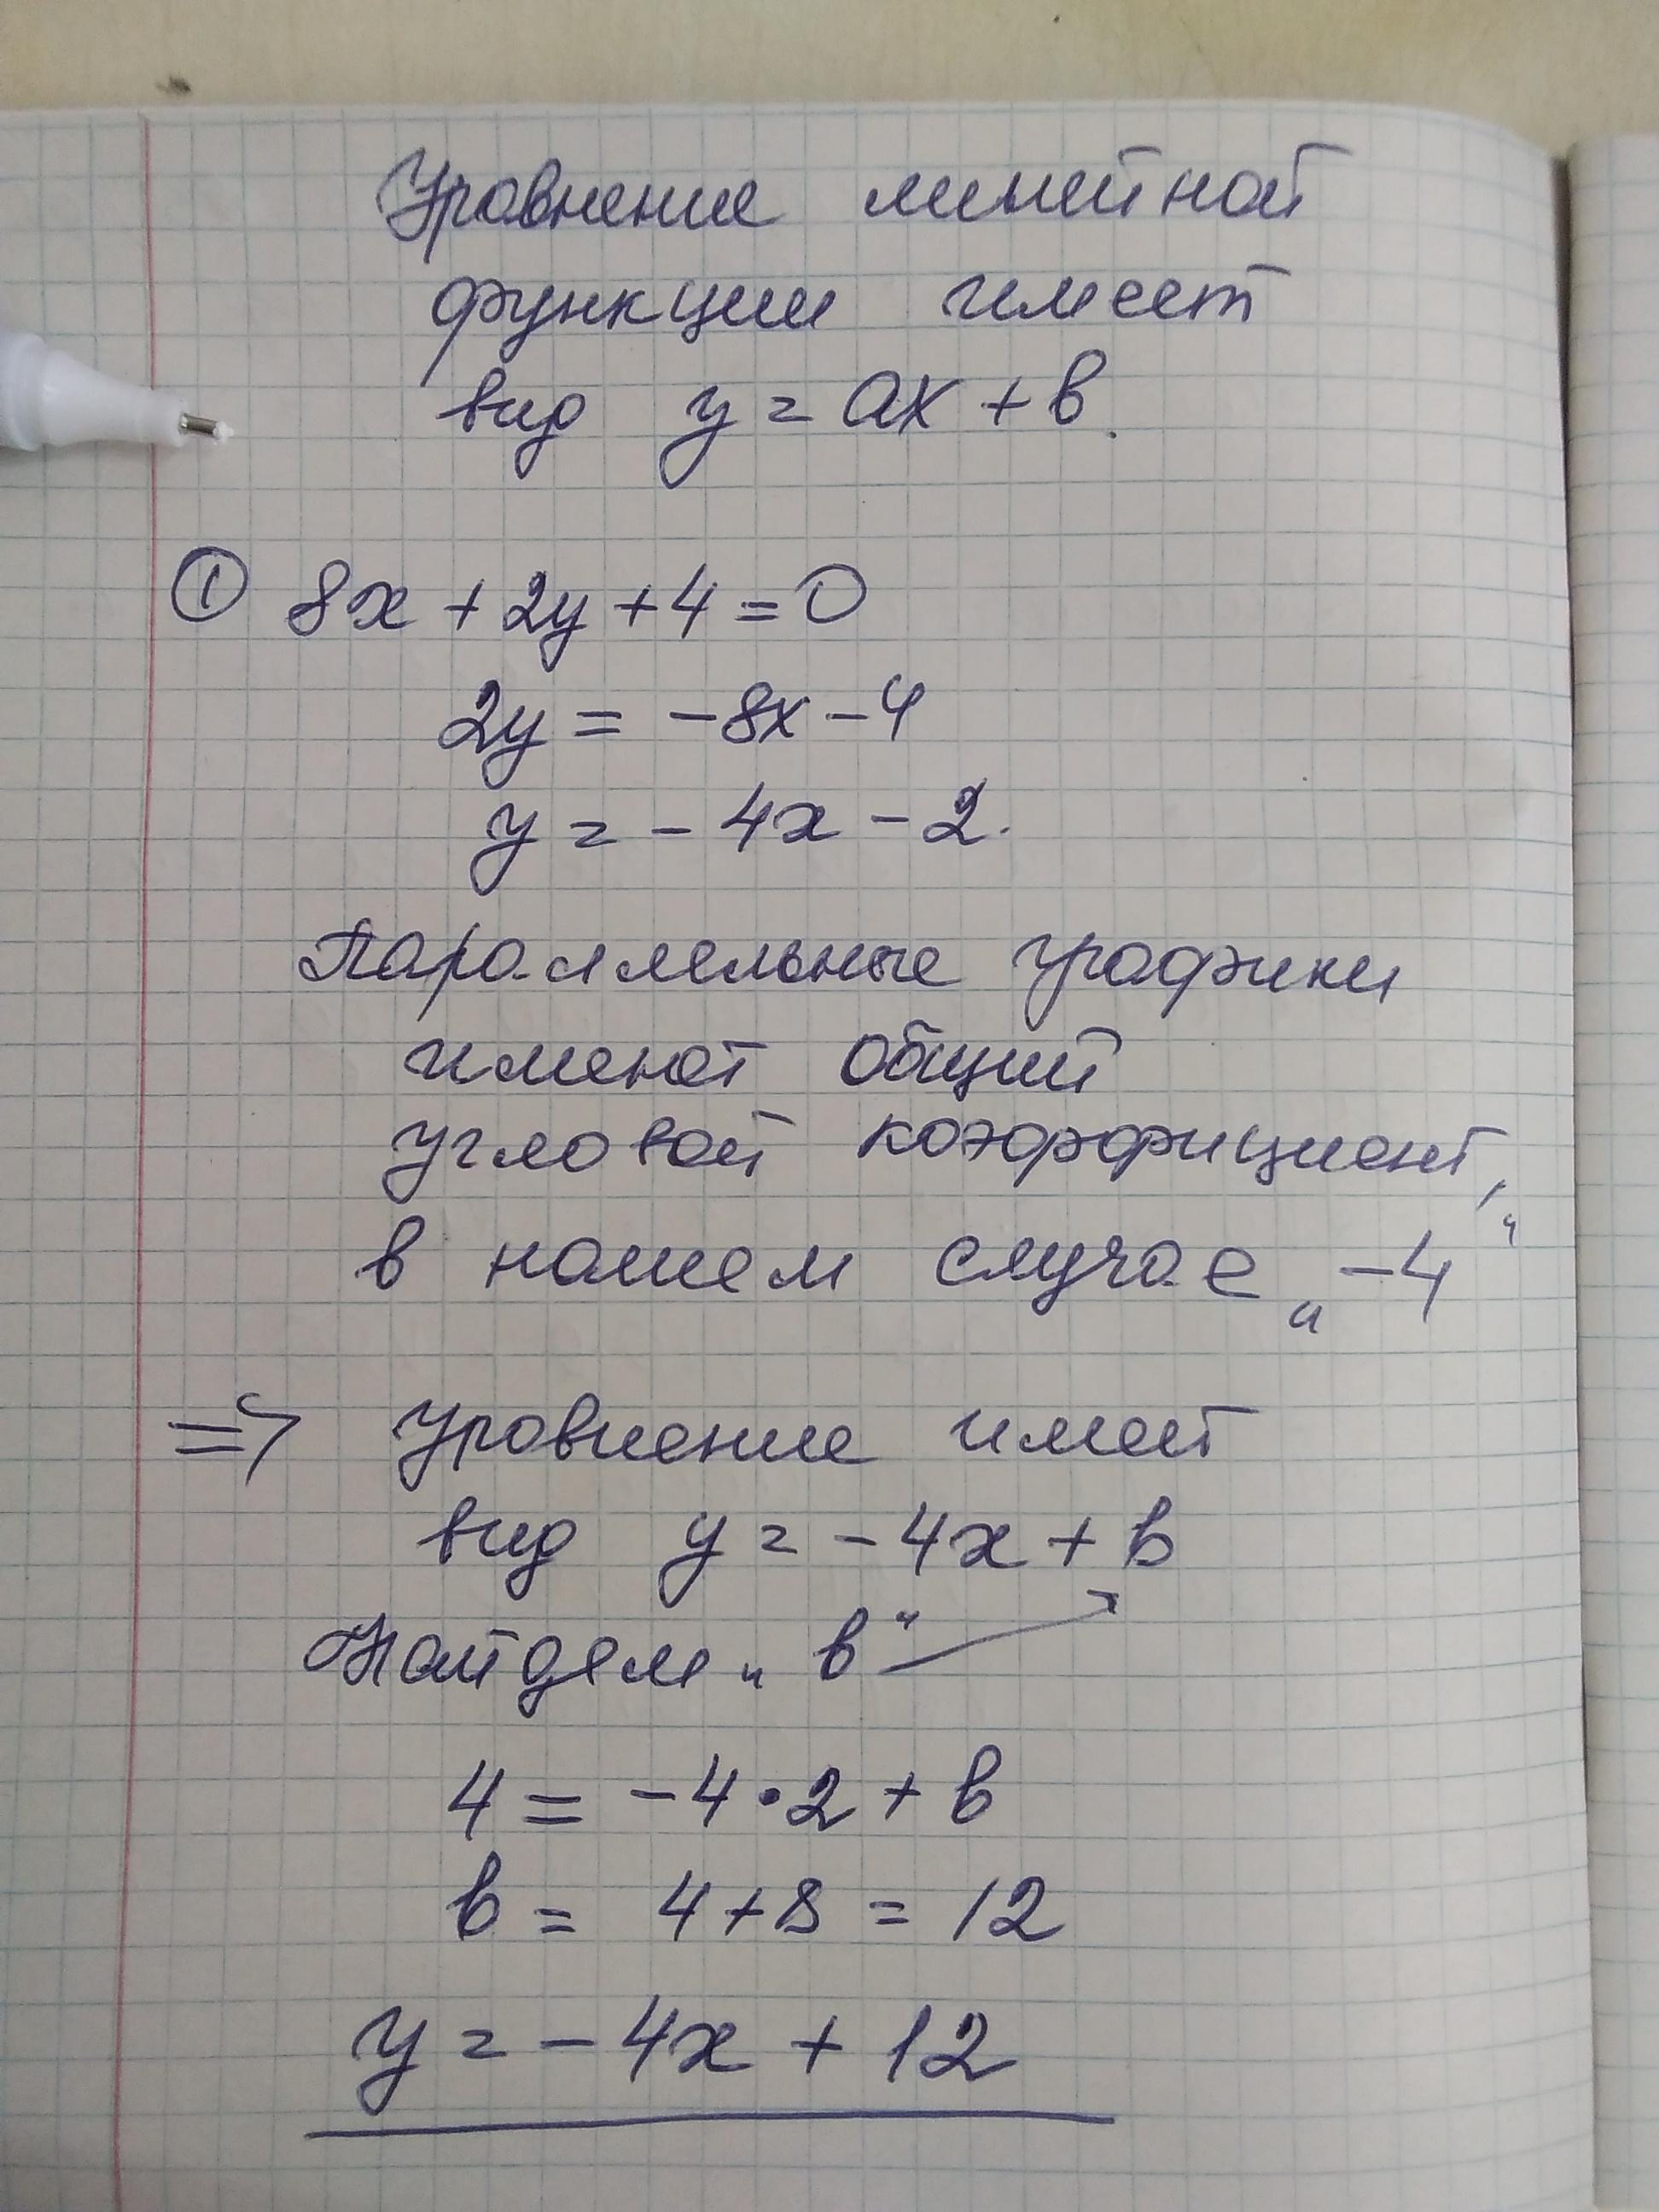 Уравнение линейной
функции имеет
вид y = ax + в.
① 8x + 2y + 4 = 0
2y = -8x - 4
y = -4x - 2.
Параллельные графики
имеют общий
угловой коэффициент,
в нашем случае „-4“
=> уравнение имеет
вид y = -4x + в
Найдем „в“
4 = -4•2 + в
в = 4 + 8 = 12
y = -4x + 12